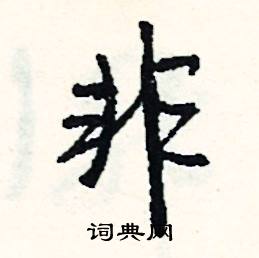 非
词典网